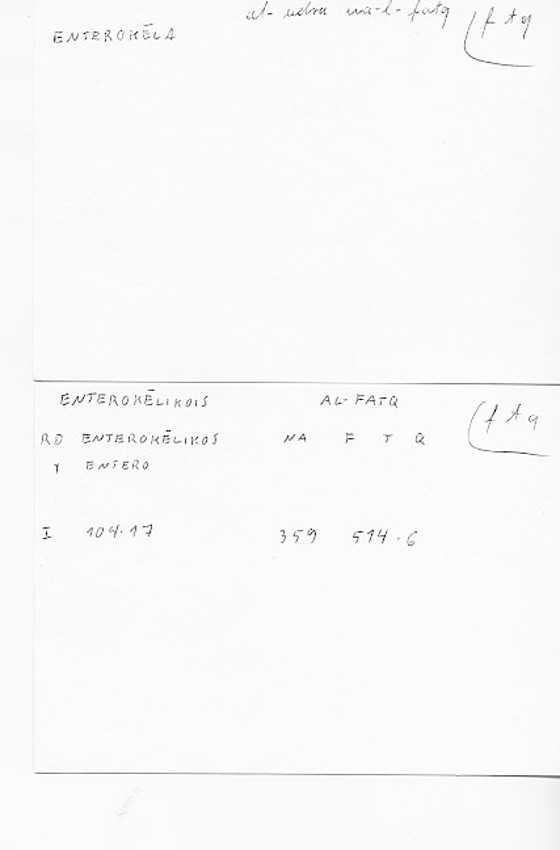 al- udra wa-l- fatq
ENTEROKĒLA
f t q
ENTEROKĒLIKOIS AL-FATQ
f t q
RD ENTEROKĒLIKOS NA F T Q
Y ENTERO
I 104.17 359 514.6